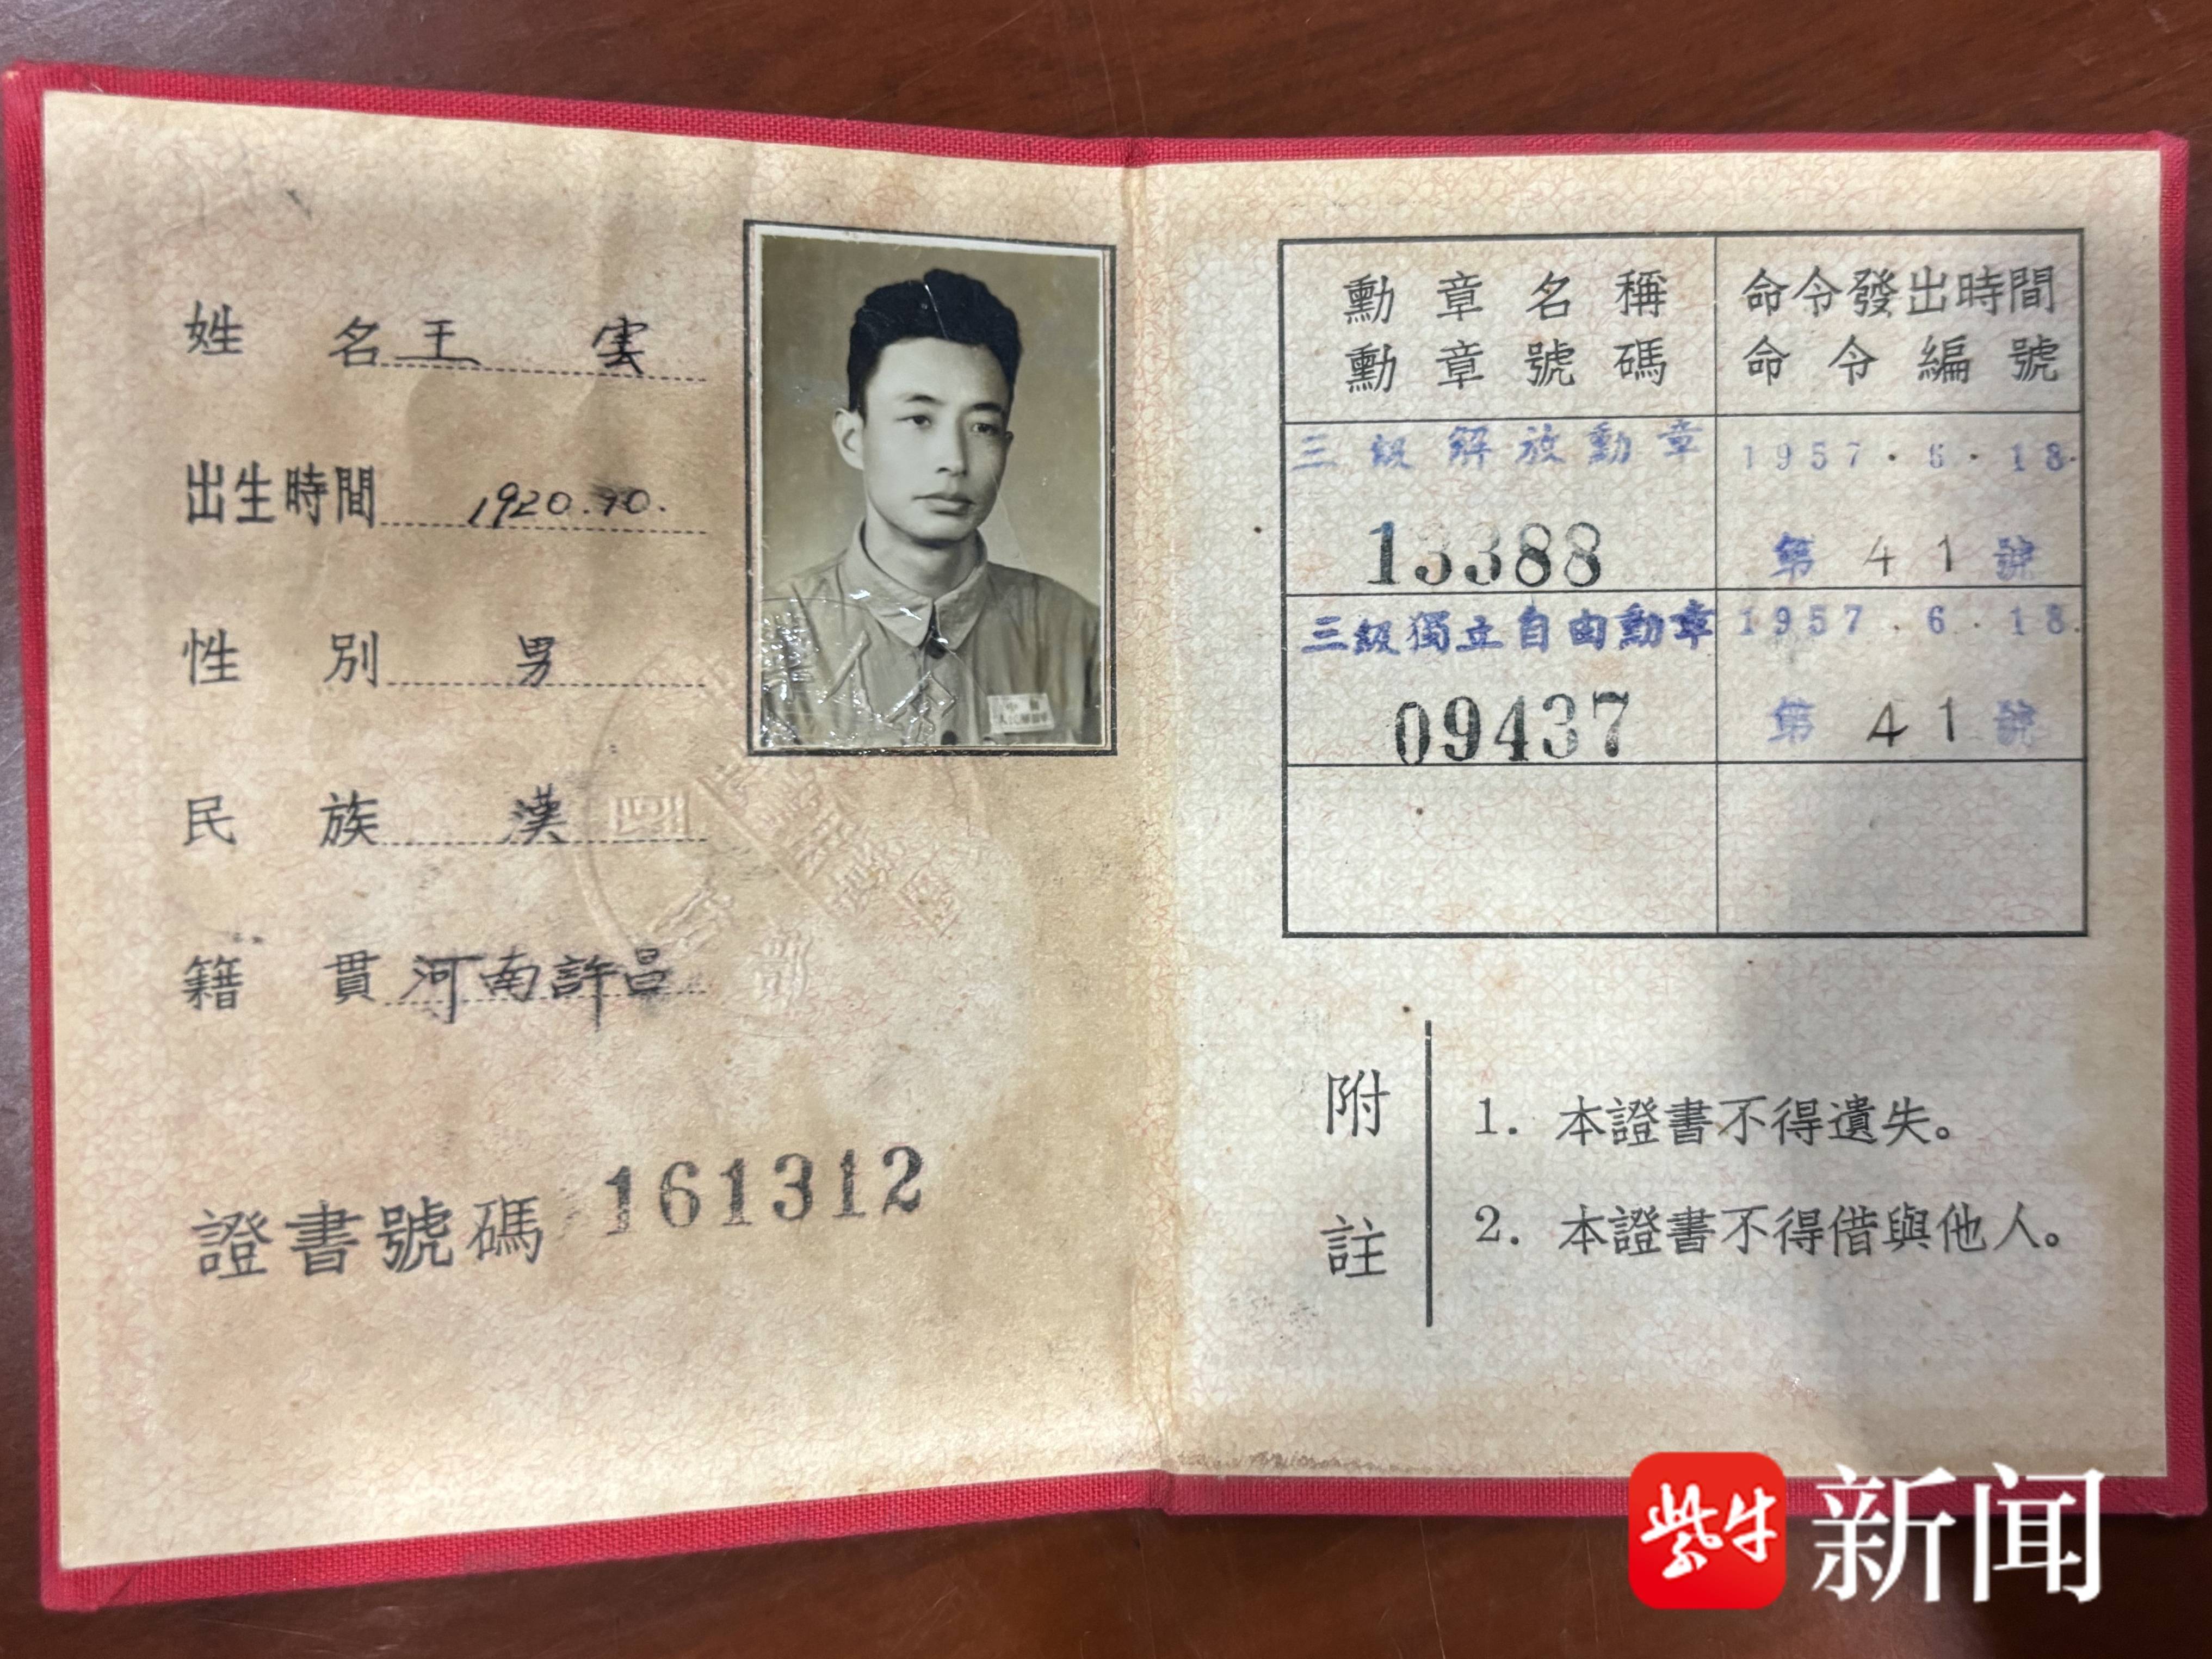 姓 名 王 雲
出生時間 1920.10.
性 別 男
民 族 漢
籍 貫 河南許昌
證書號碼 161312
勳章名稱 命令發出時間
勳章號碼 命令編號
三級解放勳章 1957.6.18.
13388 第 41 號
三級獨立自由勳章 1957.6.18.
09437 第 41 號
附註
1. 本證書不得遺失。
2. 本證書不得借與他人。
紫牛 新闻